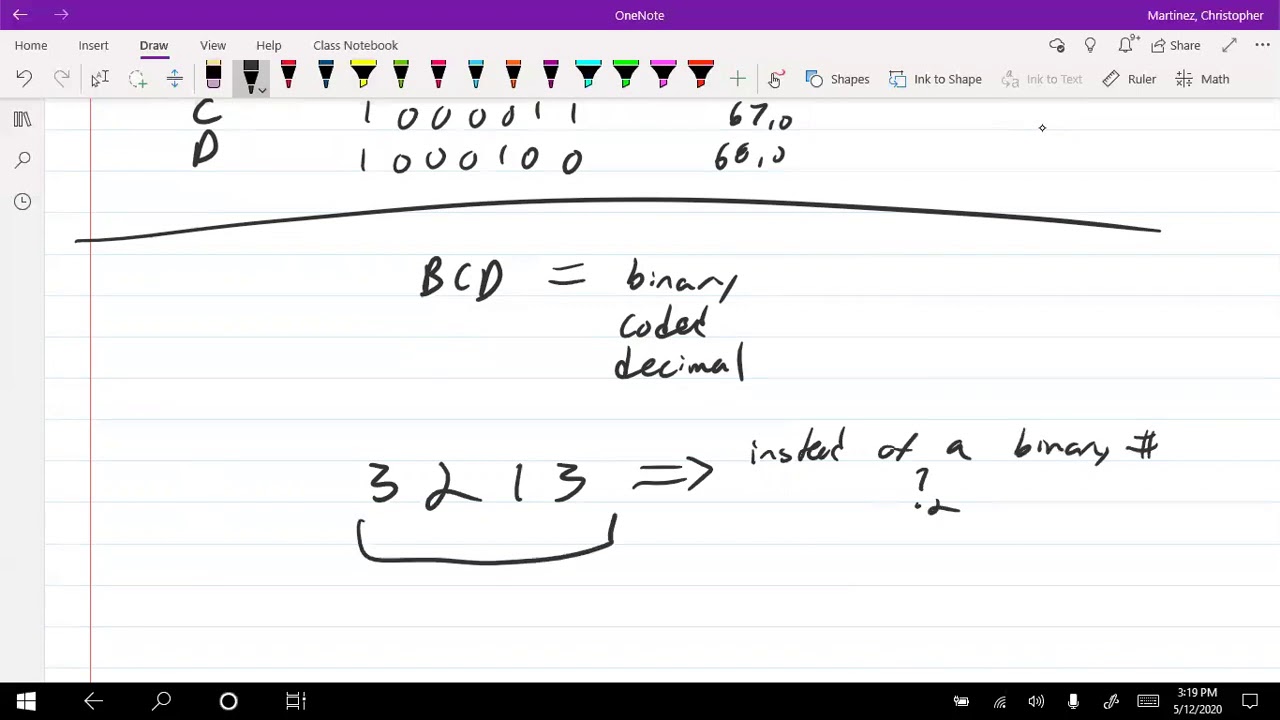 OneNote
Martinez, Christopher
Home Insert Draw View Help Class Notebook Share
Shapes Ink to Shape Ink to Text Ruler Math
C 1 0 0 0 0 1 1 67₁₀
D 1 0 0 0 1 0 0 68₁₀
BCD = binary
coded
decimal
instead of a binary #
3 2 1 3 =>
?₂
3:19 PM
5/12/2020